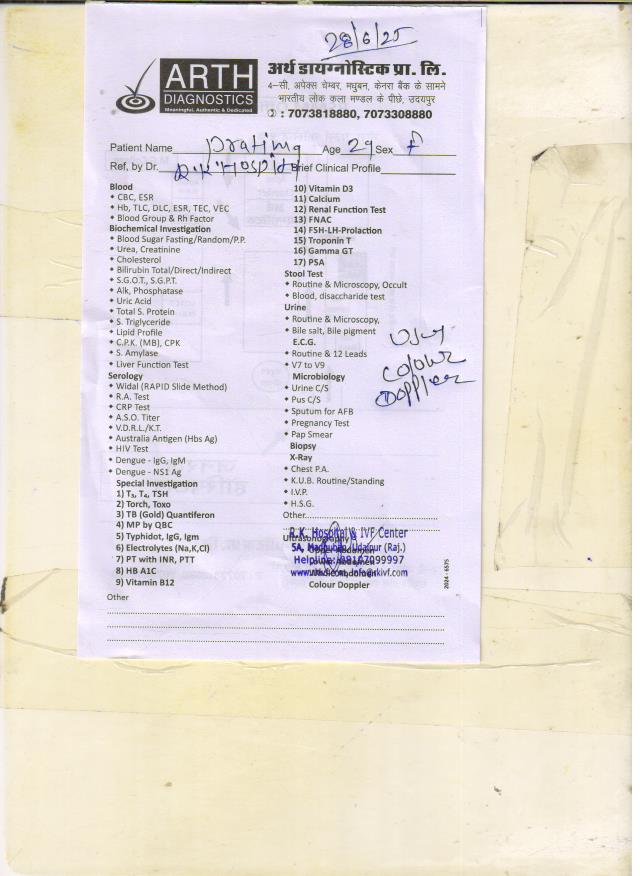 28/6/25
ARTH
DIAGNOSTICS
Meaningful, Authentic & Dedicated
अर्थ डायग्नोस्टिक प्रा. लि.
4–सी, अपेक्स चेम्बर, मधुबन, केनरा बैंक के सामने
भारतीय लोक कला मण्डल के पीछे, उदयपुर
✆ : 7073818880, 7073308880
Patient Name Pratima Age 29 Sex F
Ref, by Dr. R.K. Hospital Brief Clinical Profile
Blood
CBC, ESR
Hb, TLC, DLC, ESR, TEC, VEC
Blood Group & Rh Factor
Biochemical Investigation
Blood Sugar Fasting/Random/P.P.
Urea, Creatinine
Cholesterol
Bilirubin Total/Direct/Indirect
S.G.O.T., S.G.P.T.
Alk, Phosphatase
Uric Acid
Total S. Protein
S. Triglyceride
Lipid Profile
C.P.K. (MB), CPK
S. Amylase
Liver Function Test
Serology
Widal (RAPID Slide Method)
R.A. Test
CRP Test
A.S.O. Titer
V.D.R.L./K.T.
Australia Antigen (Hbs Ag)
HIV Test
Dengue - IgG, IgM
Dengue - NS1 Ag
Special Investigation
1) T₃, T₄, TSH
2) Torch, Toxo
3) TB (Gold) Quantiferon
4) MP by QBC
5) Typhidot, IgG, Igm
6) Electrolytes (Na,K,Cl)
7) PT with INR, PTT
8) HB A1C
9) Vitamin B12
10) Vitamin D3
11) Calcium
12) Renal Function Test
13) FNAC
14) FSH-LH-Prolaction
15) Troponin T
16) Gamma GT
17) PSA
Stool Test
Routine & Microscopy, Occult
Blood, disaccharide test
Urine
Routine & Microscopy,
Bile salt, Bile pigment
E.C.G.
Routine & 12 Leads
V7 to V9
Microbiology
Urine C/S
Pus C/S
Sputum for AFB
Pregnancy Test
Pap Smear
Biopsy
X-Ray
Chest P.A.
K.U.B. Routine/Standing
I.V.P.
H.S.G.
Other
Ultrasonography
R.K. Hospital & IVF Center
5A, Madhuban, Udaipur (Raj.)
Colour Doppler
colour
Doppler
2024 - 6575
Other